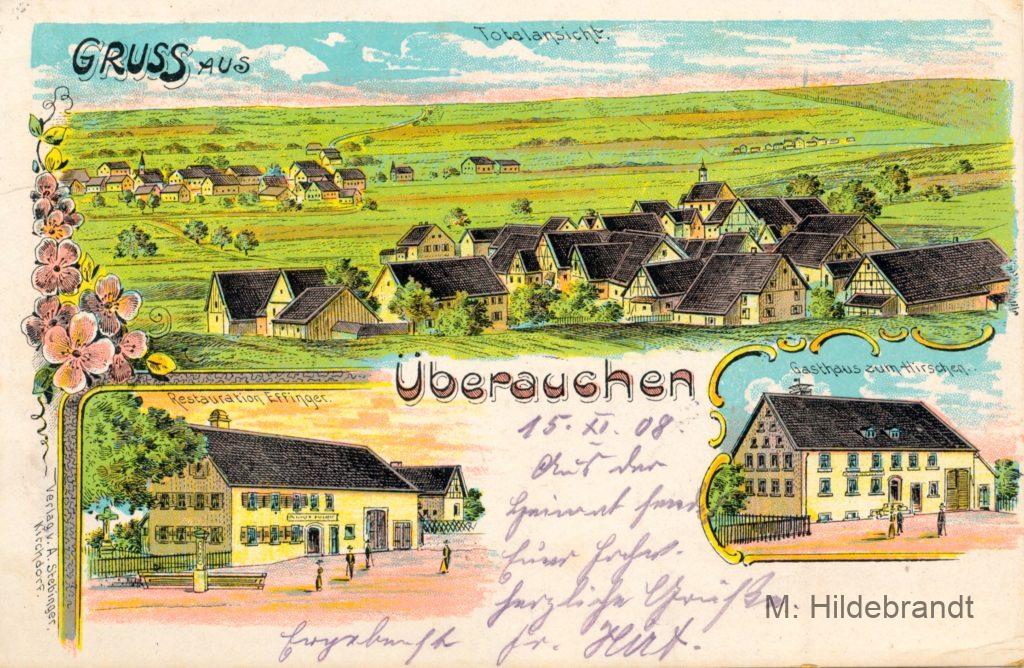 GRUSS AUS
Totalansicht.
Überauchen
Restauration Effinger.
Gasthaus zum Hirschen.
Verlag v. A. Stebinger,
Kirchdorf.
15. XI. 08.
Aus der
Heimat
herzliche Grüße
Ergebenst Fr. Hirt.
M. Hildebrandt